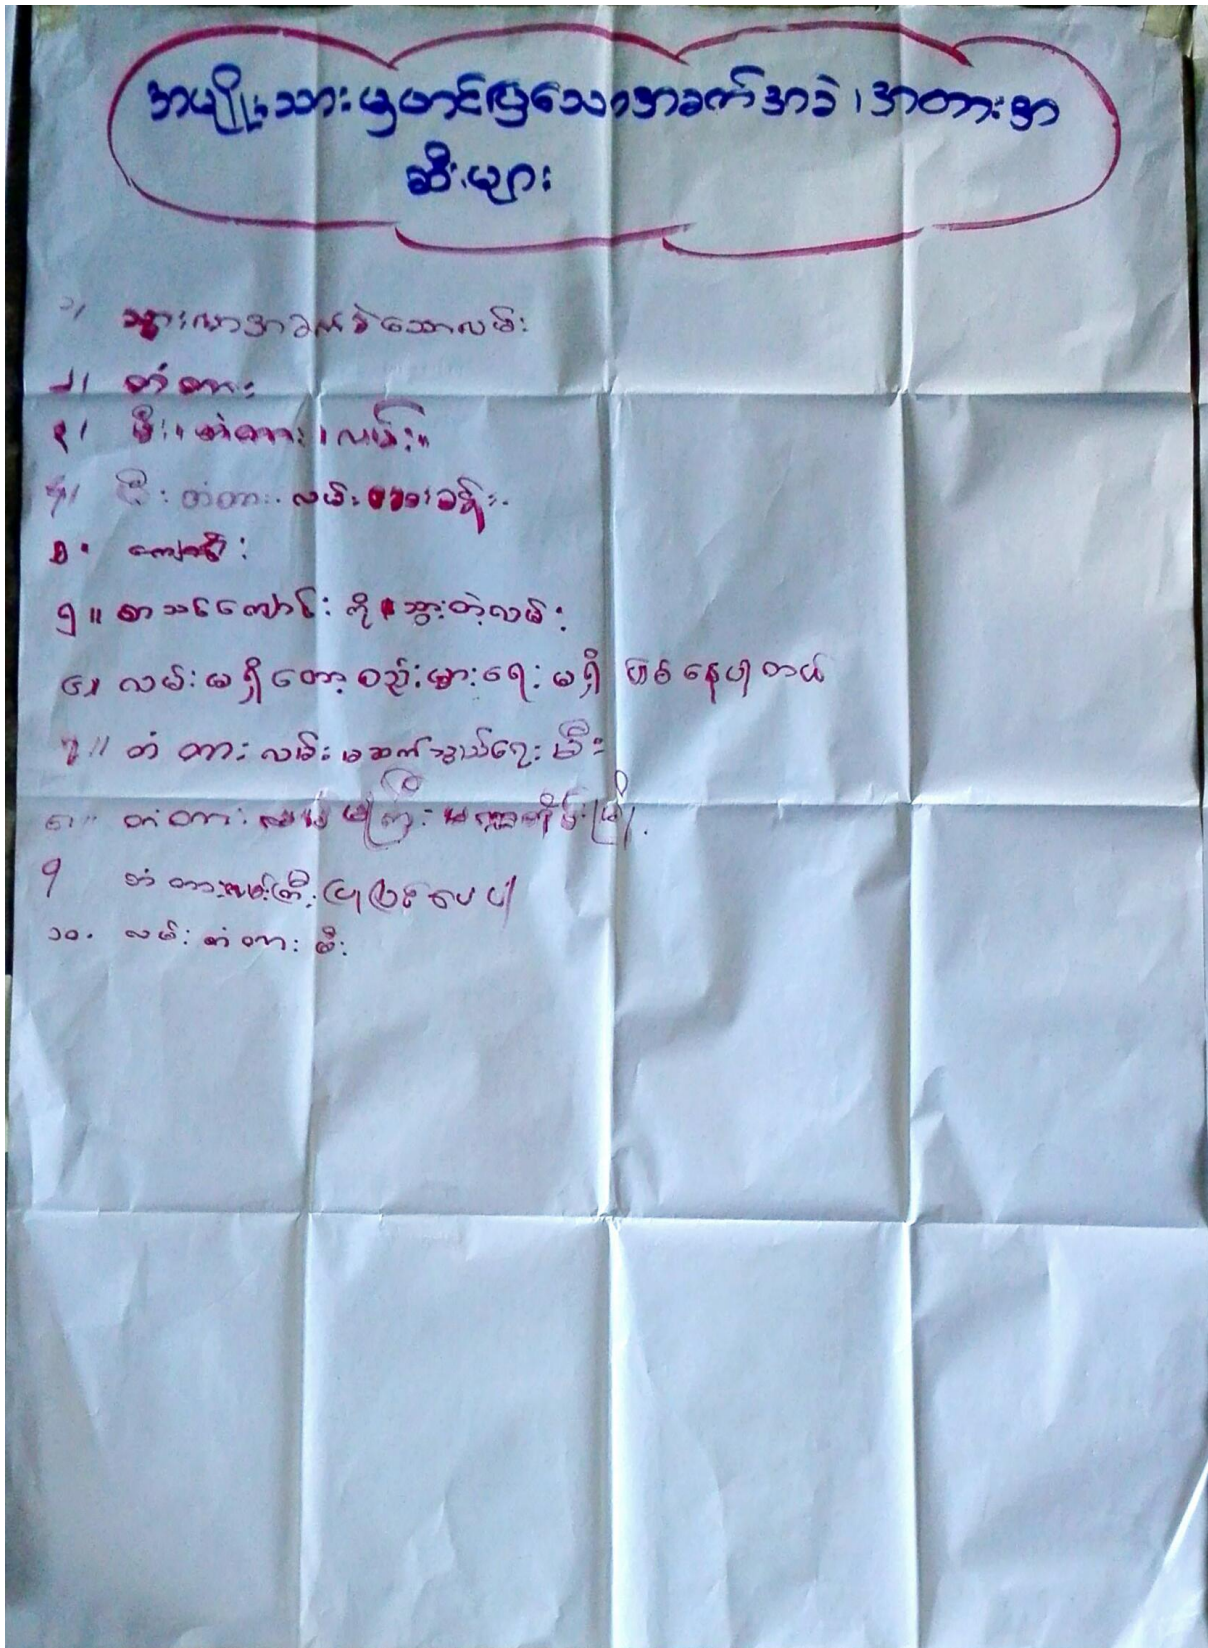 အမျိုးသားမှတင်ပြသောအခက်အခဲ၊အတားအ
ဆီးများ
၁/ သွားလာအခက်ခဲသောလမ်း
၂/ တံတား
၃/ မီး။တံတား၊လမ်း။
၄/ မီး တံတား လမ်း ဆေးခန်း
၅။ စာသင်ကျောင်း ကို သွားတဲ့လမ်း
၆။ လမ်းမရှိတော့စည်းပွားရေးမရှိ ဖြစ်နေပါတယ်
၇။ တံတား လမ်း၊ ဆက်သွယ်ရေး မီး
၈။ တံတား
၉ တံတားလမ်းကြီးပြုပြင်ပေးပါ
၁၀. လမ်း တံတား မီး